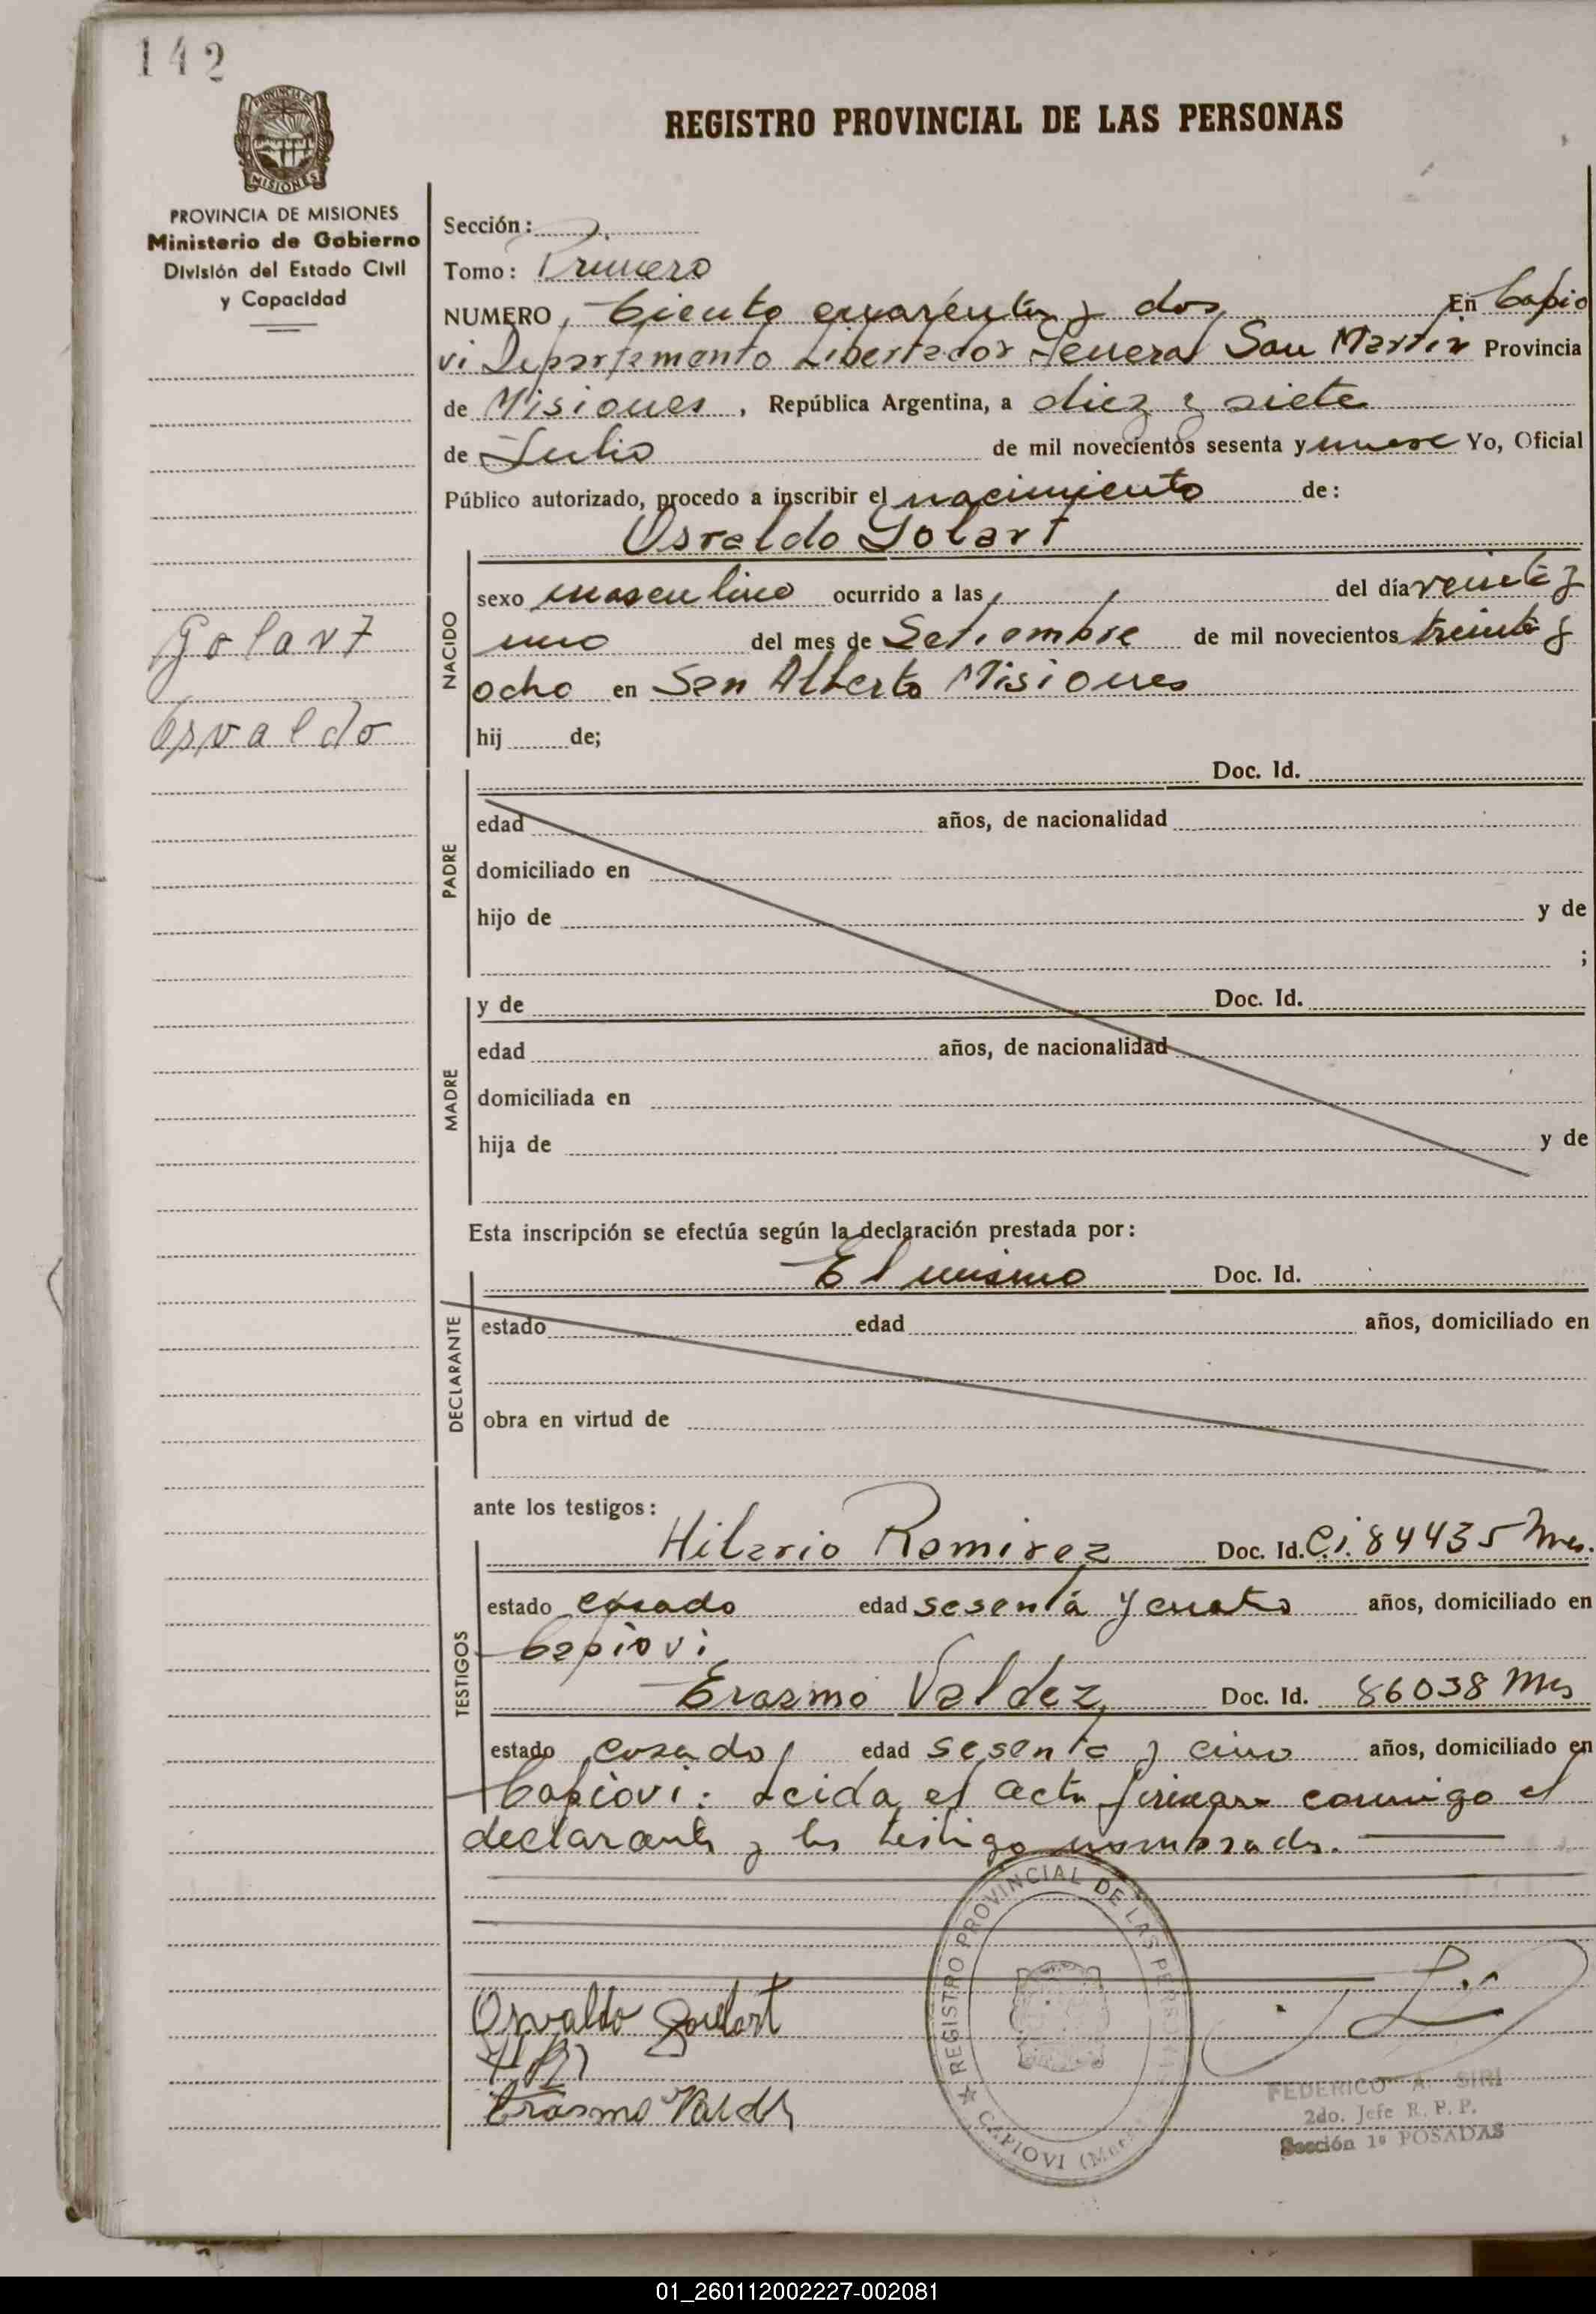 142
REGISTRO PROVINCIAL DE LAS PERSONAS
PROVINCIA DE MISIONES
MISIONES
PROVINCIA DE MISIONES
Ministerio de Gobierno
División del Estado Civil
y Capacidad
Sección:
Tomo: Primero
NUMERO, Ciento cuarenta y dos, En Capio
vi Departamento Libertador General San Martin Provincia
de Misiones, República Argentina, a diez y siete
de Julio de mil novecientos sesenta y nueve Yo, Oficial
Público autorizado, procedo a inscribir el nacimiento de:
Osvaldo Golart
Golart
Osvaldo
NACIDO
sexo masculino ocurrido a las del día veinte y
uno del mes de Setiembre de mil novecientos treinta y
ocho en San Alberto Misiones
hij de;
PADRE
Doc. Id.
edad años, de nacionalidad
domiciliado en
hijo de y de
;
MADRE
y de Doc. Id.
edad años, de nacionalidad
domiciliada en
hija de y de
Esta inscripción se efectúa según la declaración prestada por:
DECLARANTE
El mismo Doc. Id.
estado edad años, domiciliado en
obra en virtud de
ante los testigos:
TESTIGOS
Hilario Ramirez Doc. Id. C.i. 84435 Mnes.
estado casado edad sesenta y cuatro años, domiciliado en
Capiovi
Erasmo Valdez Doc. Id. 86038 Mns
estado casado edad sesenta y cinco años, domiciliado en
Capiovi: Leida el acta firman conmigo el
declarante y los testigo nombrados.
Osvaldo Goulart
Erasmo Valdez
REGISTRO PROVINCIAL DE LAS PERSONAS
CAPIOVI
FEDERICO A. SIRI
2do. Jefe R. P. P.
Sección 1ª POSADAS
01_260112002227-002081